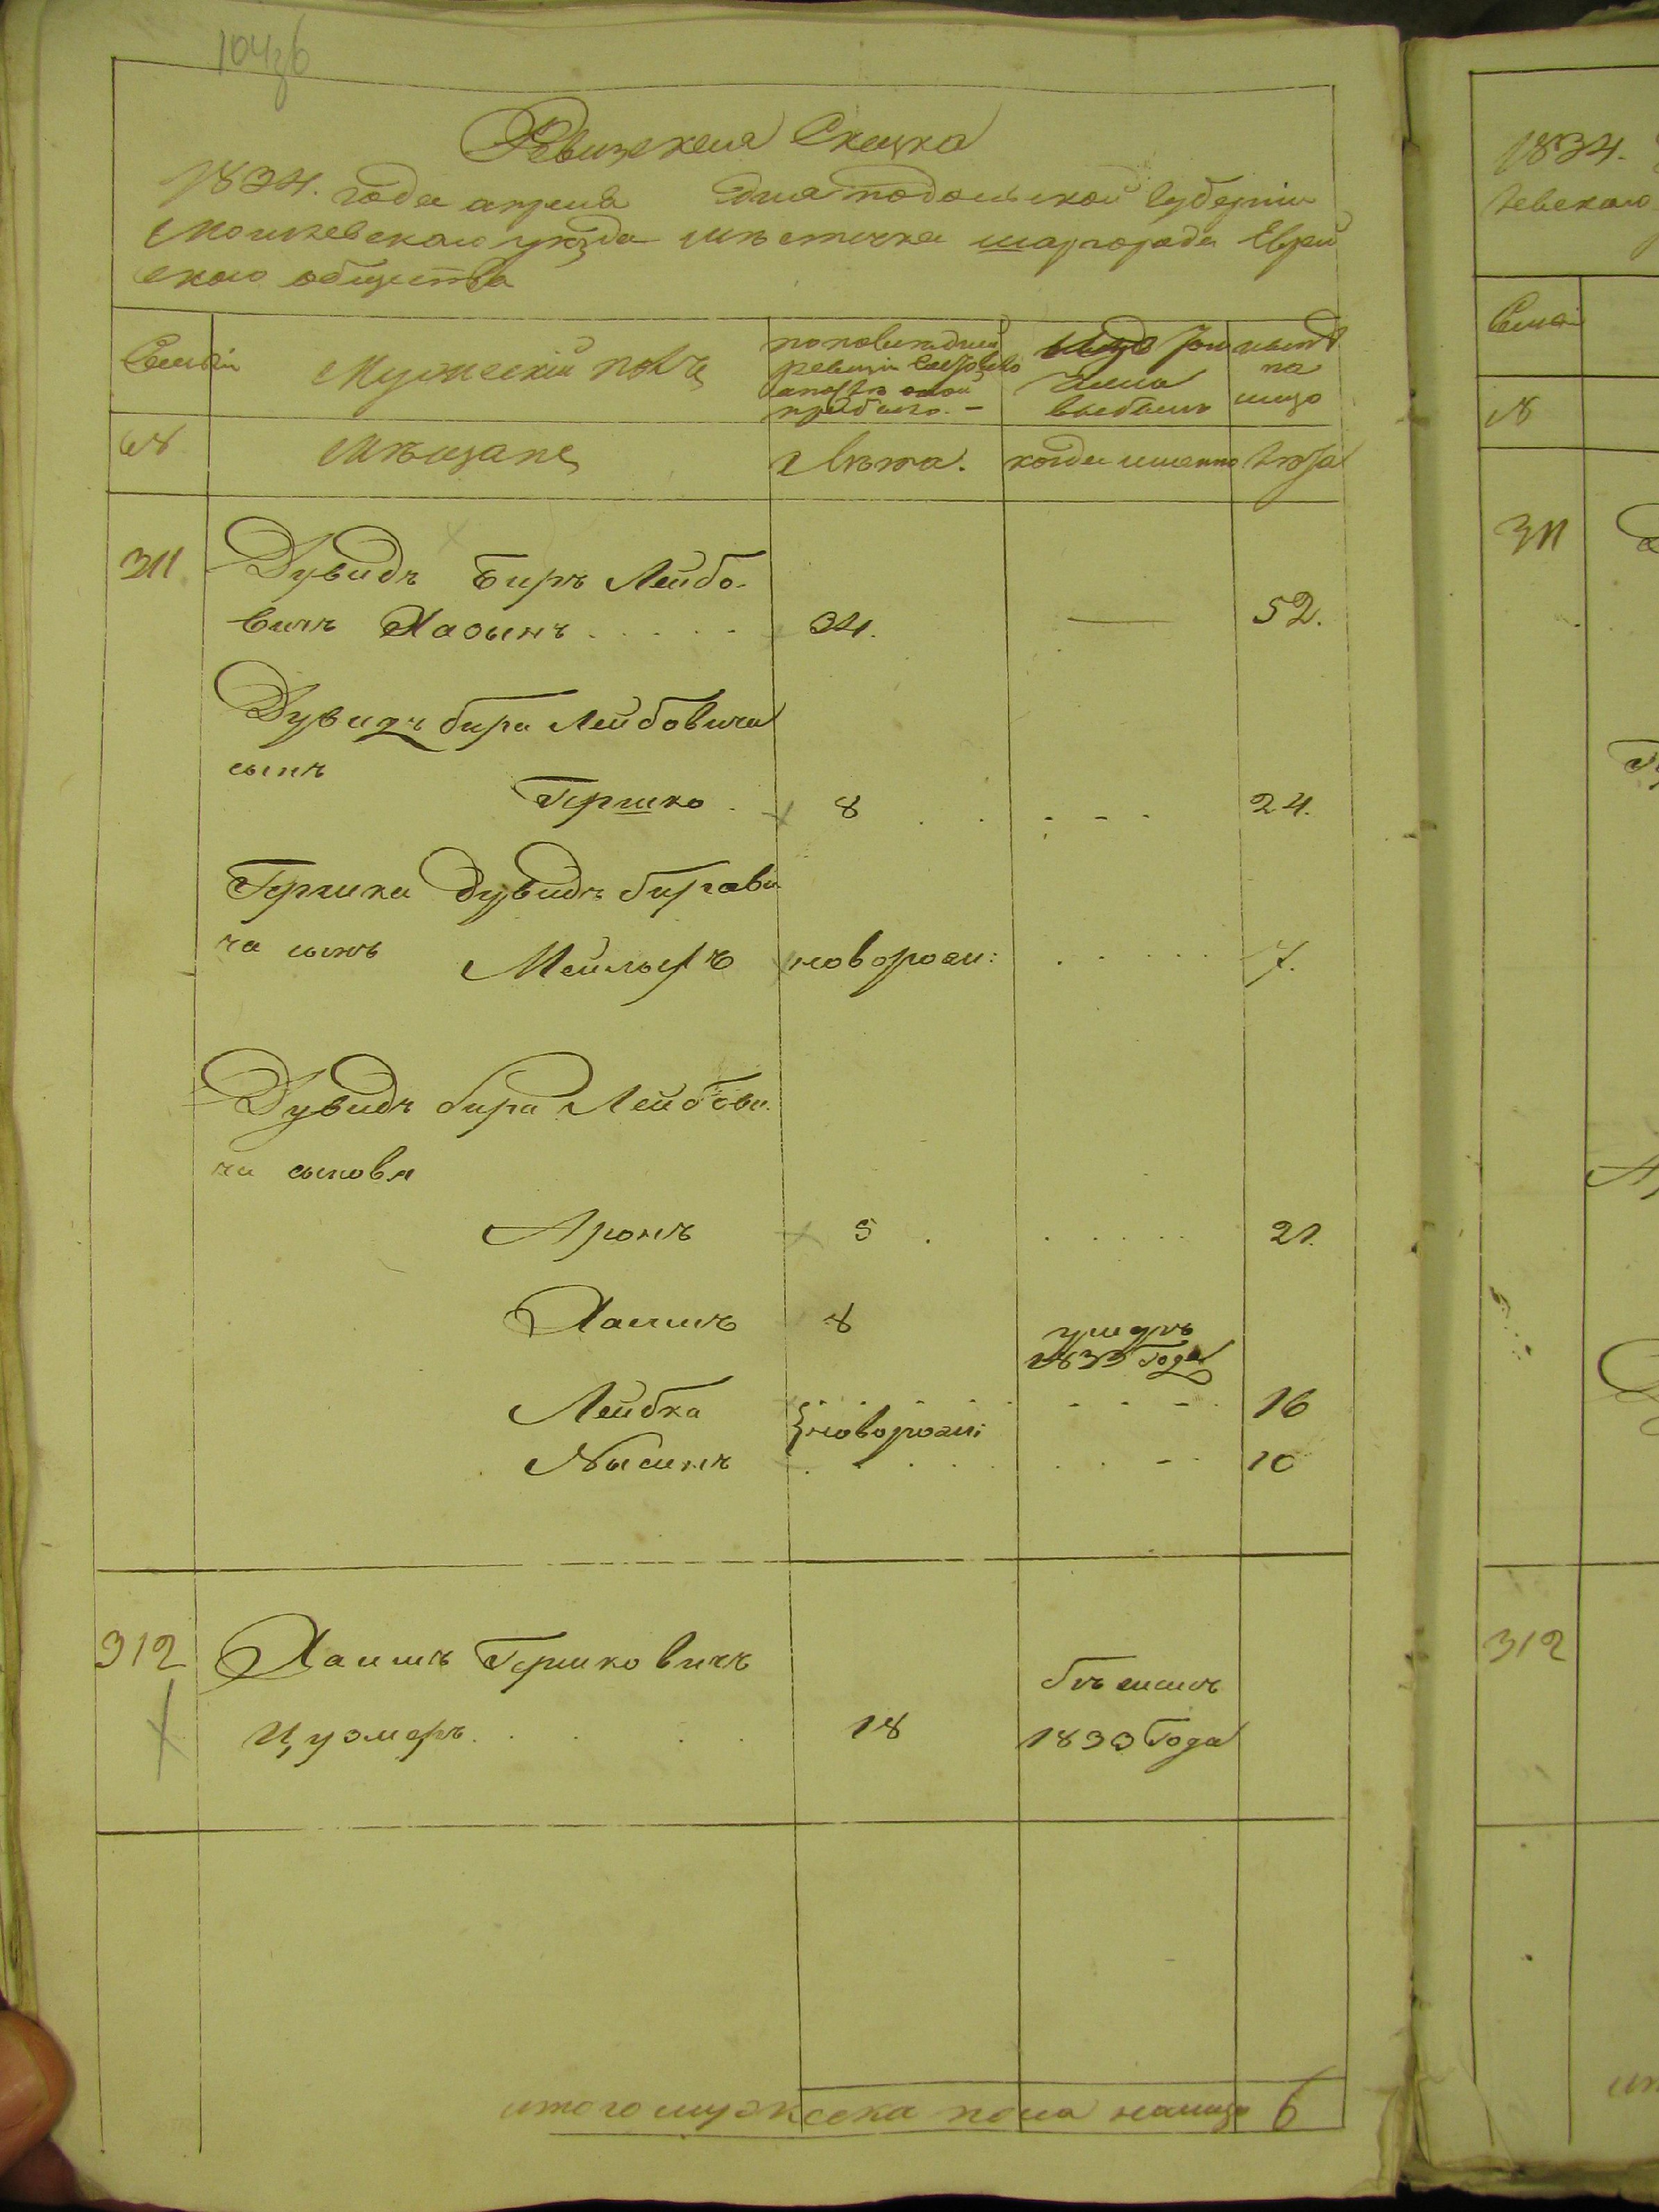 104зв
Ревизская Сказка
1834. года апреля дня подольской Губернии
Могилевского уезда местечка шаргорода Еврей
ского общества
Семьи
Мужеский полъ
по последней
ревизіи состояло
и после оной
прибыло. –
Изъ того
числа
выбыло
ныне
на
лицо
№
Мещане
Лета.
когда именно
Лета
311
Дувидъ Биръ Лейбо-
вичъ Хазынъ . . . . .
34.
—
52.
Дувидъ бира Лейбовича
сынъ
Гершко .
8
24.
Гершка Дувидъ бирови
ча сынъ Мейлехъ
новорож:
7.
Дувидъ бира Лейбови
ча сыновя
Аронъ
5
21.
Хаимъ
8
умеръ
1833 Года
Лейбка
16
новорож:
Нысынъ
10
312
Хаимъ Гершковичъ
бежалъ
Цузмеръ . . . .
18
1833 Года
итого мужеска пола налицо 6
1834.
левского
Семьи
№
311
312